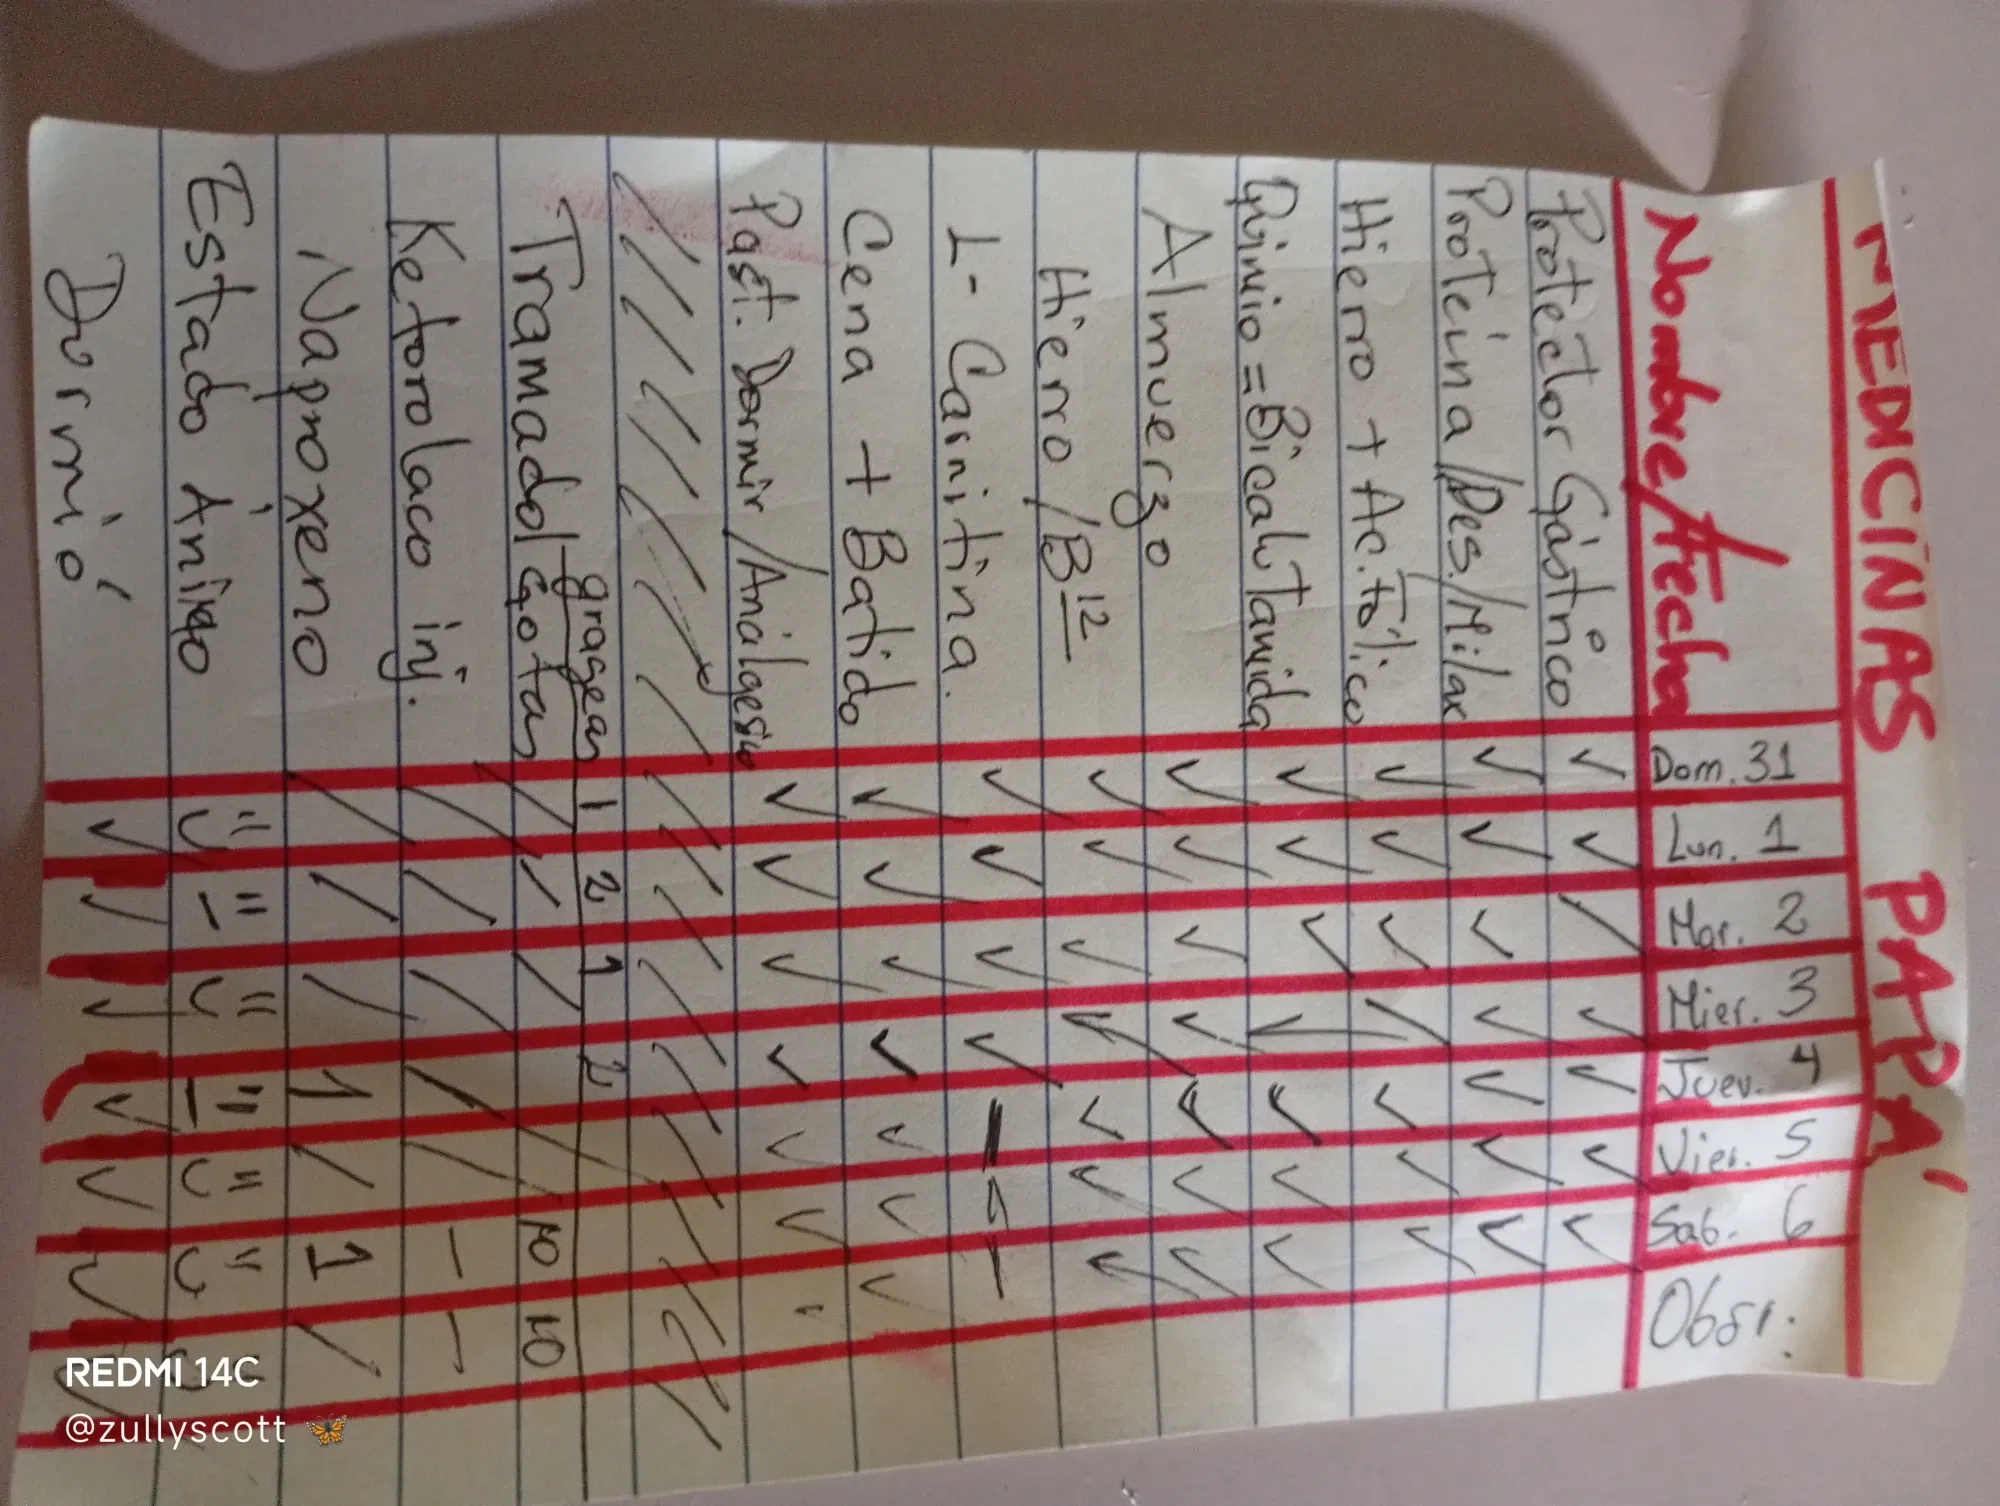 MEDICINAS PAPÁ
Nombre/Fecha Dom. 31 Lun. 1 Mar. 2 Mier. 3 Juev. 4 Vier. 5 Sab. 6 Obsr:
Protector Gástrico ✓ ✓ / ✓ ✓ ✓ ✓
Proteína/Des./Milax ✓ ✓ ✓ ✓ ✓ ✓ ✓
Hierro + Ac. Fólico ✓ ✓ ✓ / ✓ ✓ ✓
Quimio = Bicalutamida ✓ ✓ ✓ ✓ ✓ ✓ ✓
Almuerzo ✓ ✓ ✓ ✓ ✓ ✓ ✓
Hierro/B12 ✓ ✓ ✓ ✓ ✓ ✓ ✓
L-Carnitina. ✓ ✓ ✓ ✓ - ✓ -
Cena + Batido ✓ ✓ ✓ ✓ ✓ ✓ ✓
Past. Dormir/Análgesia ✓ ✓ ✓ ✓ ✓ ✓
grageas 1 2 1 2
Tramadol gotas / / / 10 10
Ketorolaco inj. / / / / / - -
Naproxeno / / / 1 / 1 /
Estado Ánimo
Durmió ✓ ✓ ✓ ✓ ✓ ✓ ✓
REDMI 14C
@zullyscott 🦋